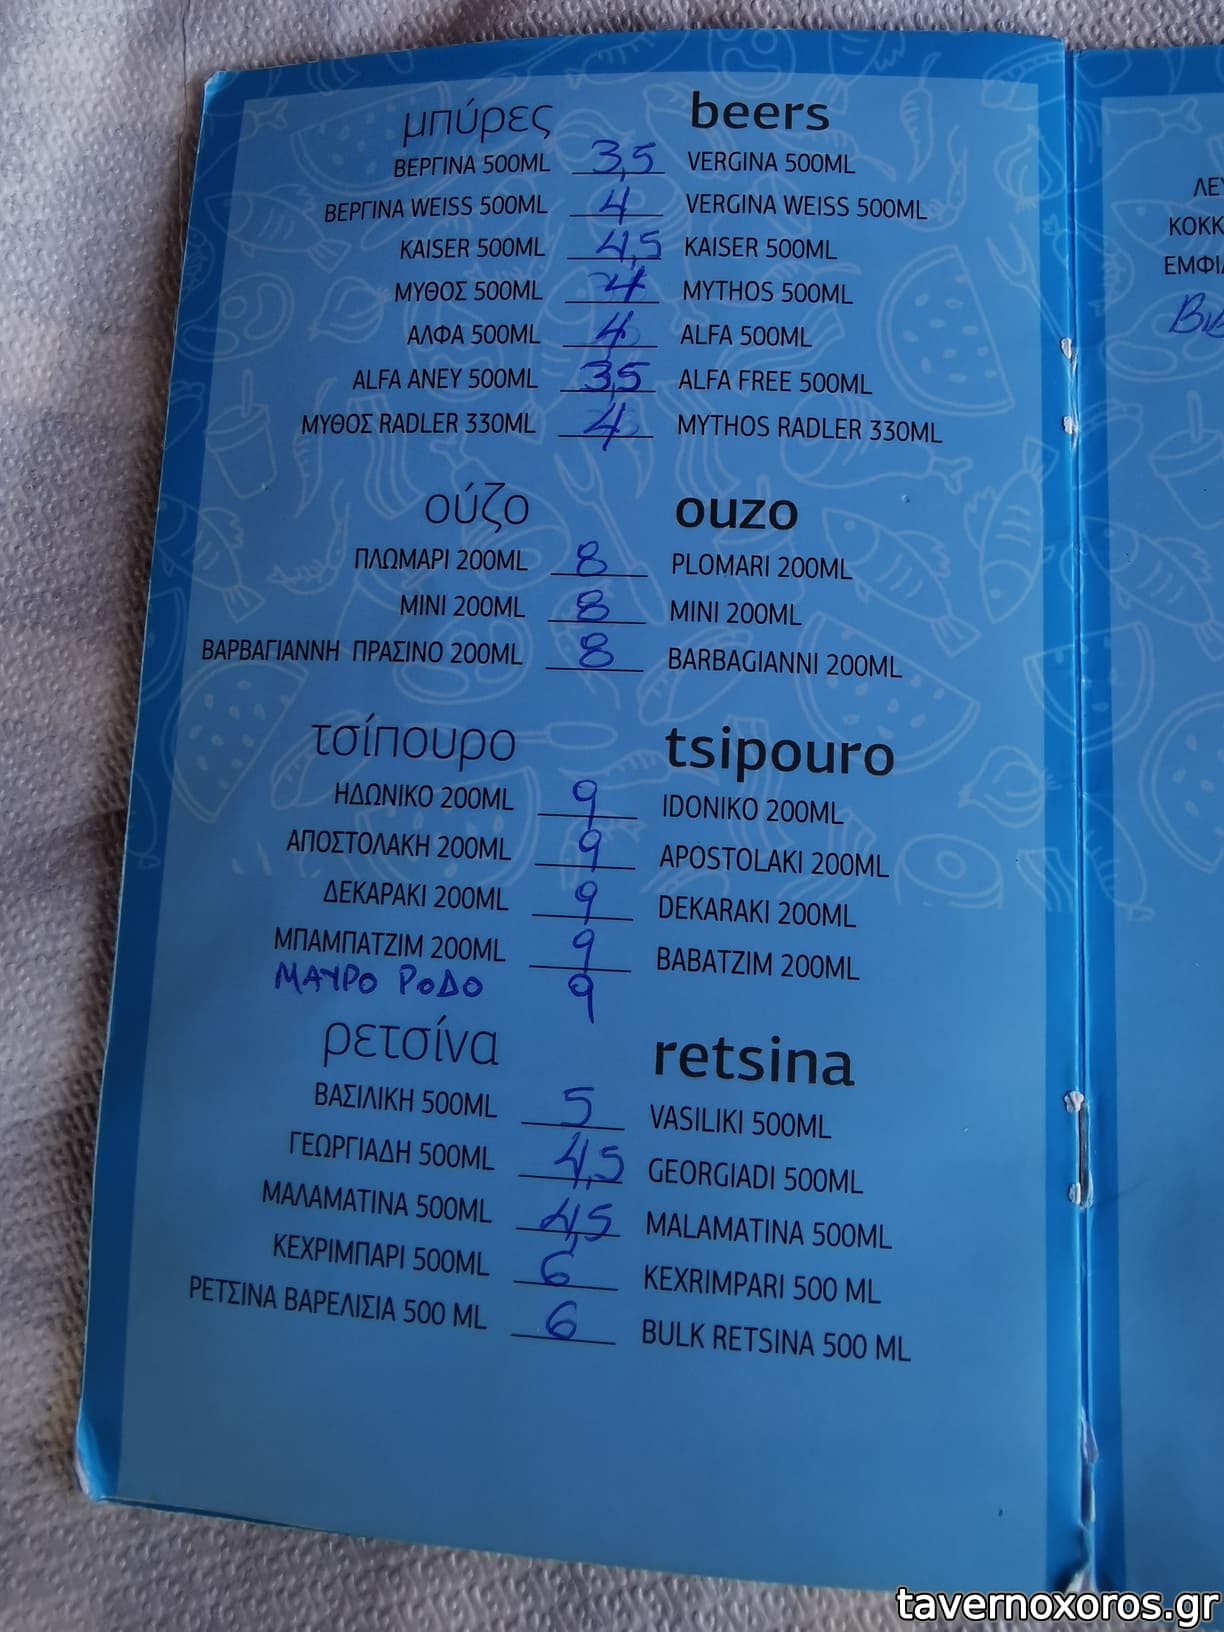 μπύρες beers
ΒΕΡΓΙΝΑ 500ML 3,5 VERGINA 500ML
ΒΕΡΓΙΝΑ WEISS 500ML 4 VERGINA WEISS 500ML
KAISER 500ML 4,5 KAISER 500ML
ΜΥΘΟΣ 500ML 4 MYTHOS 500ML
ΑΛΦΑ 500ML 4 ALFA 500ML
ALFA ANEY 500ML 3,5 ALFA FREE 500ML
ΜΥΘΟΣ RADLER 330ML 4 MYTHOS RADLER 330ML
ούζο ouzo
ΠΛΩΜΑΡΙ 200ML 8 PLOMARI 200ML
ΜΙΝΙ 200ML 8 MINI 200ML
ΒΑΡΒΑΓΙΑΝΝΗ ΠΡΑΣΙΝΟ 200ML 8 BARBAGIANNI 200ML
τσίπουρο tsipouro
ΗΔΩΝΙΚΟ 200ML 9 IDONIKO 200ML
ΑΠΟΣΤΟΛΑΚΗ 200ML 9 APOSTOLAKI 200ML
ΔΕΚΑΡΑΚΙ 200ML 9 DEKARAKI 200ML
ΜΠΑΜΠΑΤΖΙΜ 200ML 9 BABATZIM 200ML
ΜΑΥΡΟ ΡΟΔΟ 9
ρετσίνα retsina
ΒΑΣΙΛΙΚΗ 500ML 5 VASILIKI 500ML
ΓΕΩΡΓΙΑΔΗ 500ML 4,5 GEORGIADI 500ML
ΜΑΛΑΜΑΤΙΝΑ 500ML 4,5 MALAMATINA 500ML
ΚΕΧΡΙΜΠΑΡΙ 500ML 6 KEXRIMPARI 500 ML
ΡΕΤΣΙΝΑ ΒΑΡΕΛΙΣΙΑ 500 ML 6 BULK RETSINA 500 ML
tavernoxoros.gr